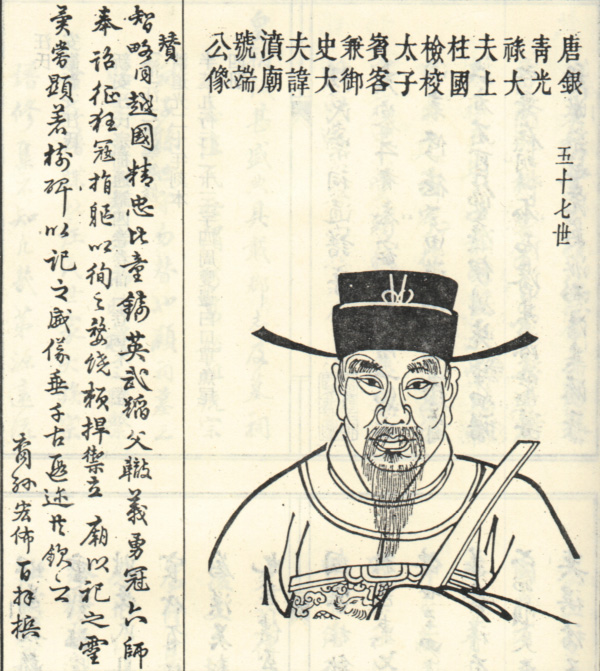 唐銀
青光
祿大
夫上
柱國
檢校
太子
賓客
兼御
史大
夫諱
濆廟
號端
公像
五十七世
贊
智略同越國精忠比童錡英武蹈父轍義勇冠六師
奉詔征狂寇捐軀以徇之婺繞賴捍禦立廟以記之靈
爽常顯著樹碑以記之盛儀垂千古遐迩共欽之
裔孫宏佈百拜撰